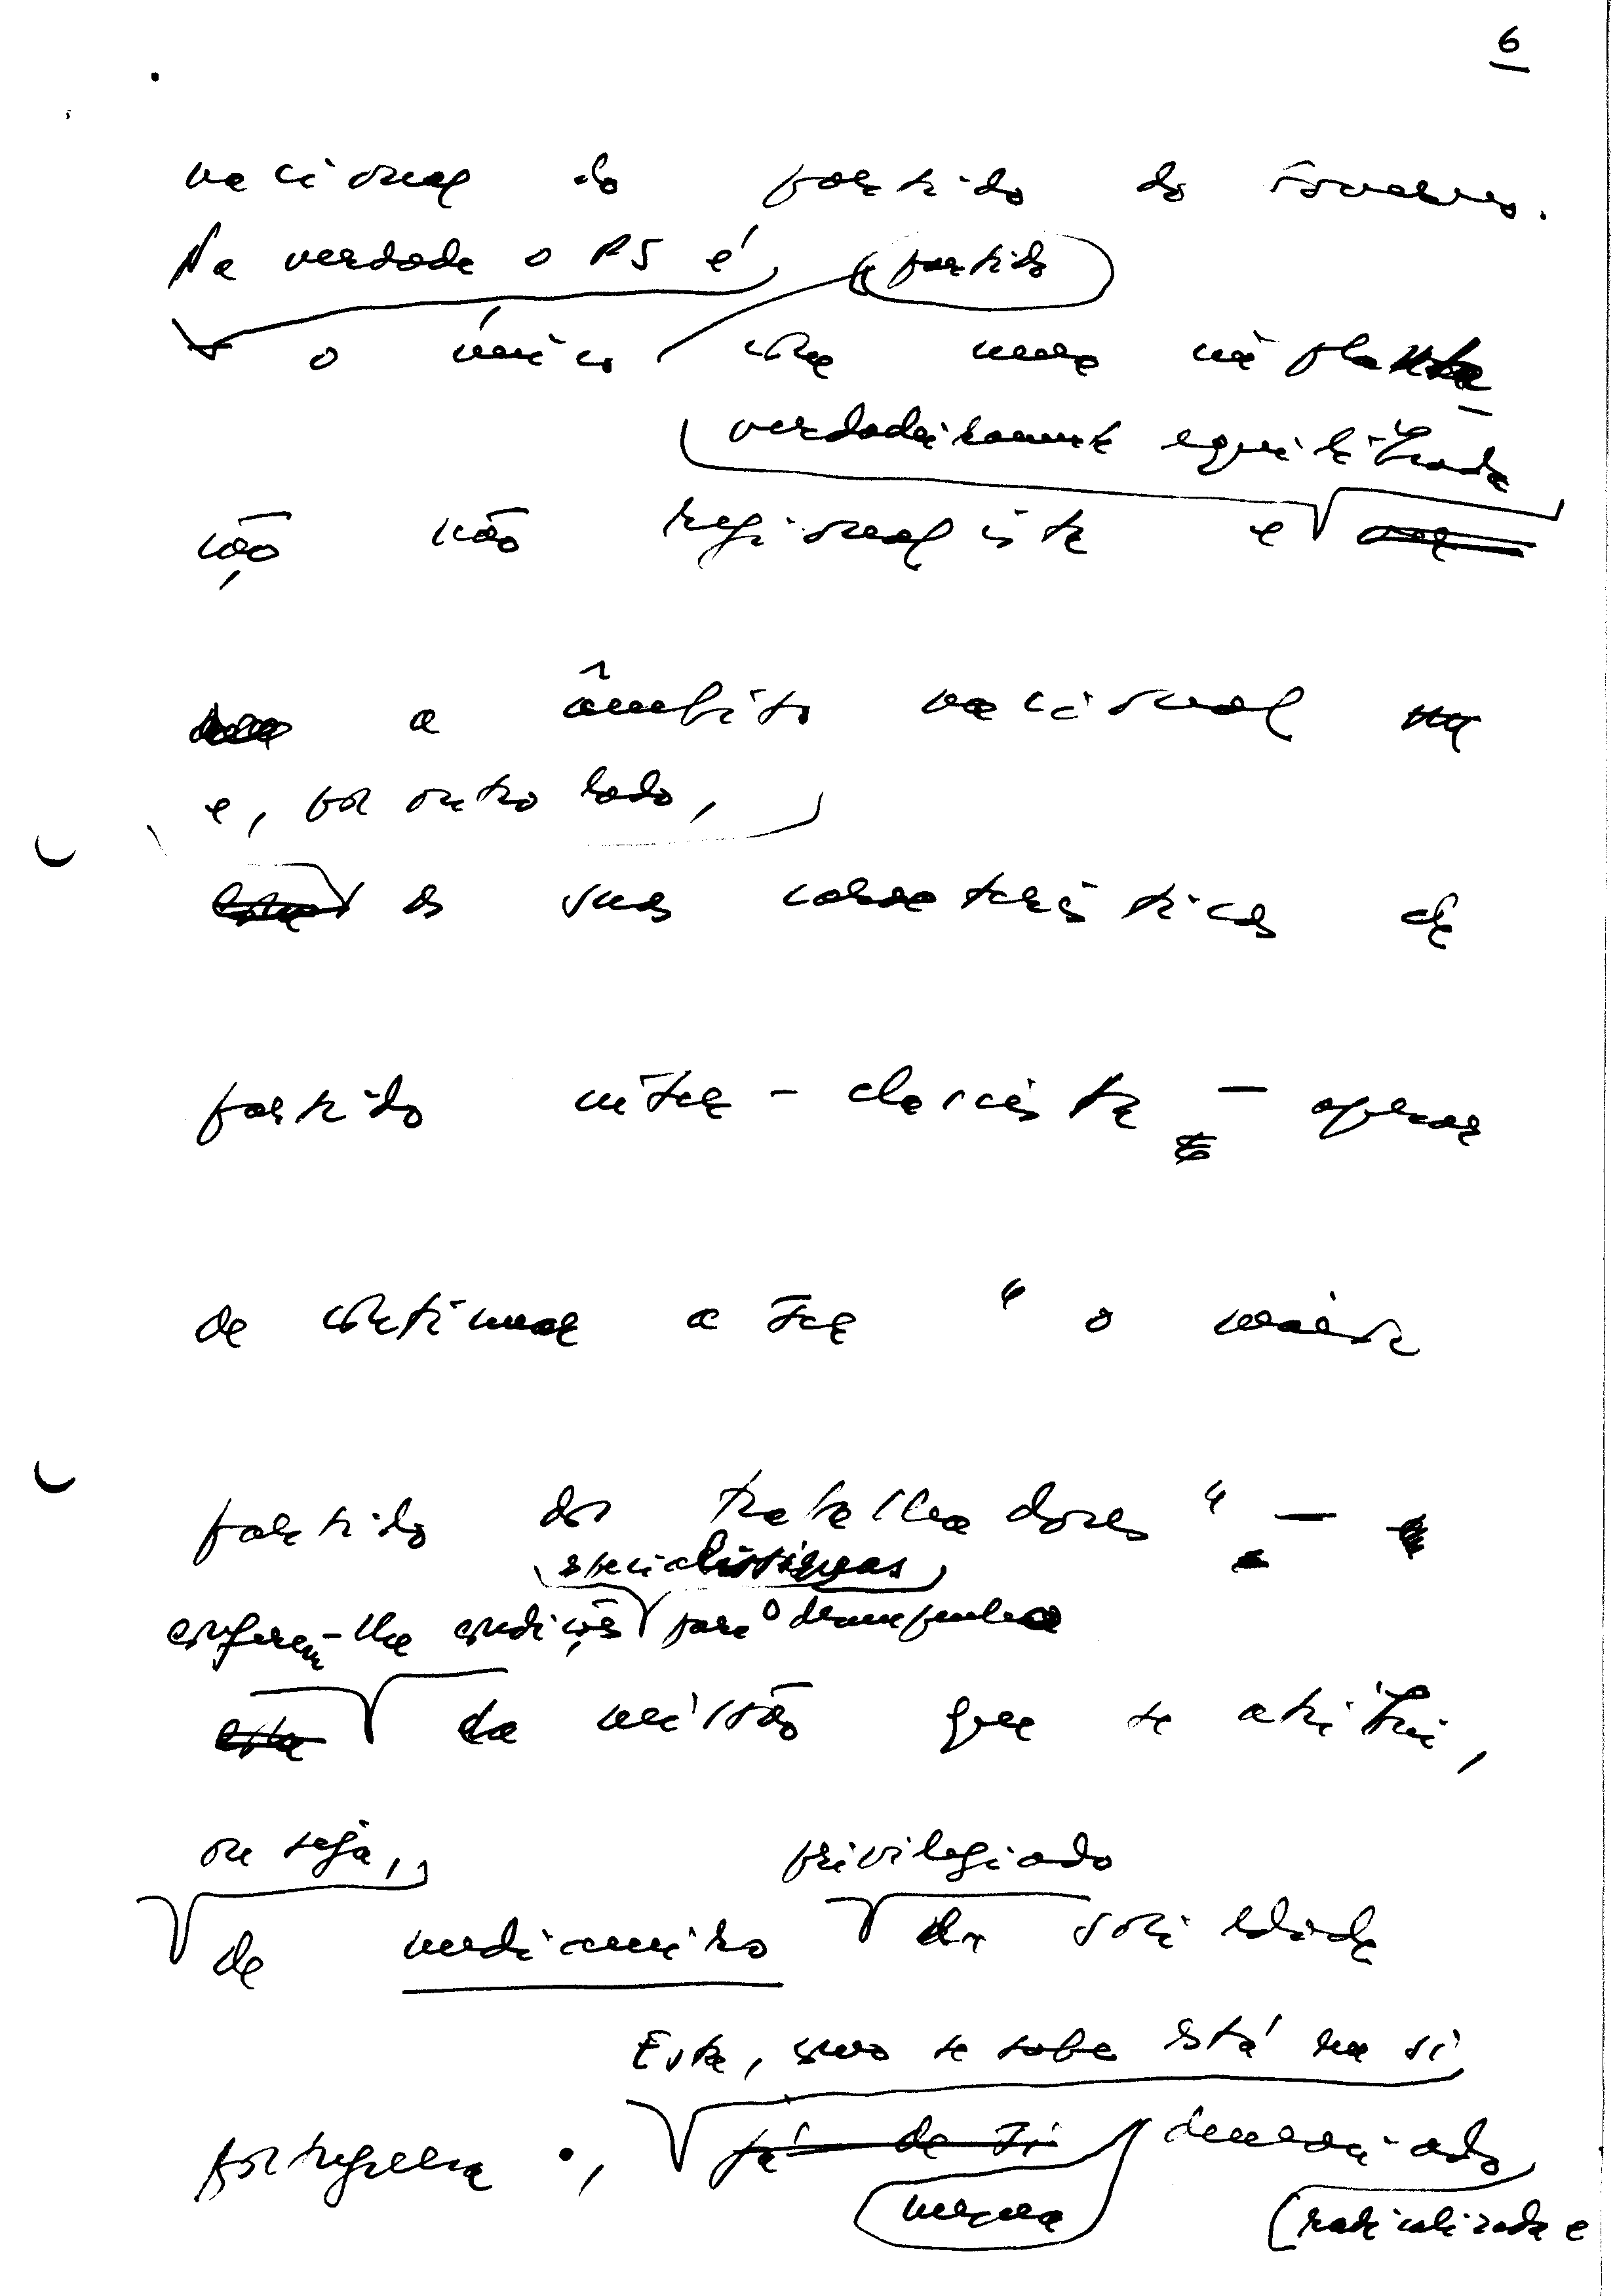 6
nacional do partido do Governo.
Na verdade o PS é partido
o único com uma implanta-
verdadeiramente equilibrada
ção não regionalista e
a âmbito nacional
e, por outro lado,
as suas características de
partido inter-classista — apesar
de continuar a ser "o maior
partido dos trabalhadores" —
conferem-lhe condições para o desempenho
da missão que se atribui,
ou seja, privilegiado
de medianeiro da sociedade
Esta, como se sabe está em si
portuguesa.,
já de si demasiado
mesma
(radicalizada e